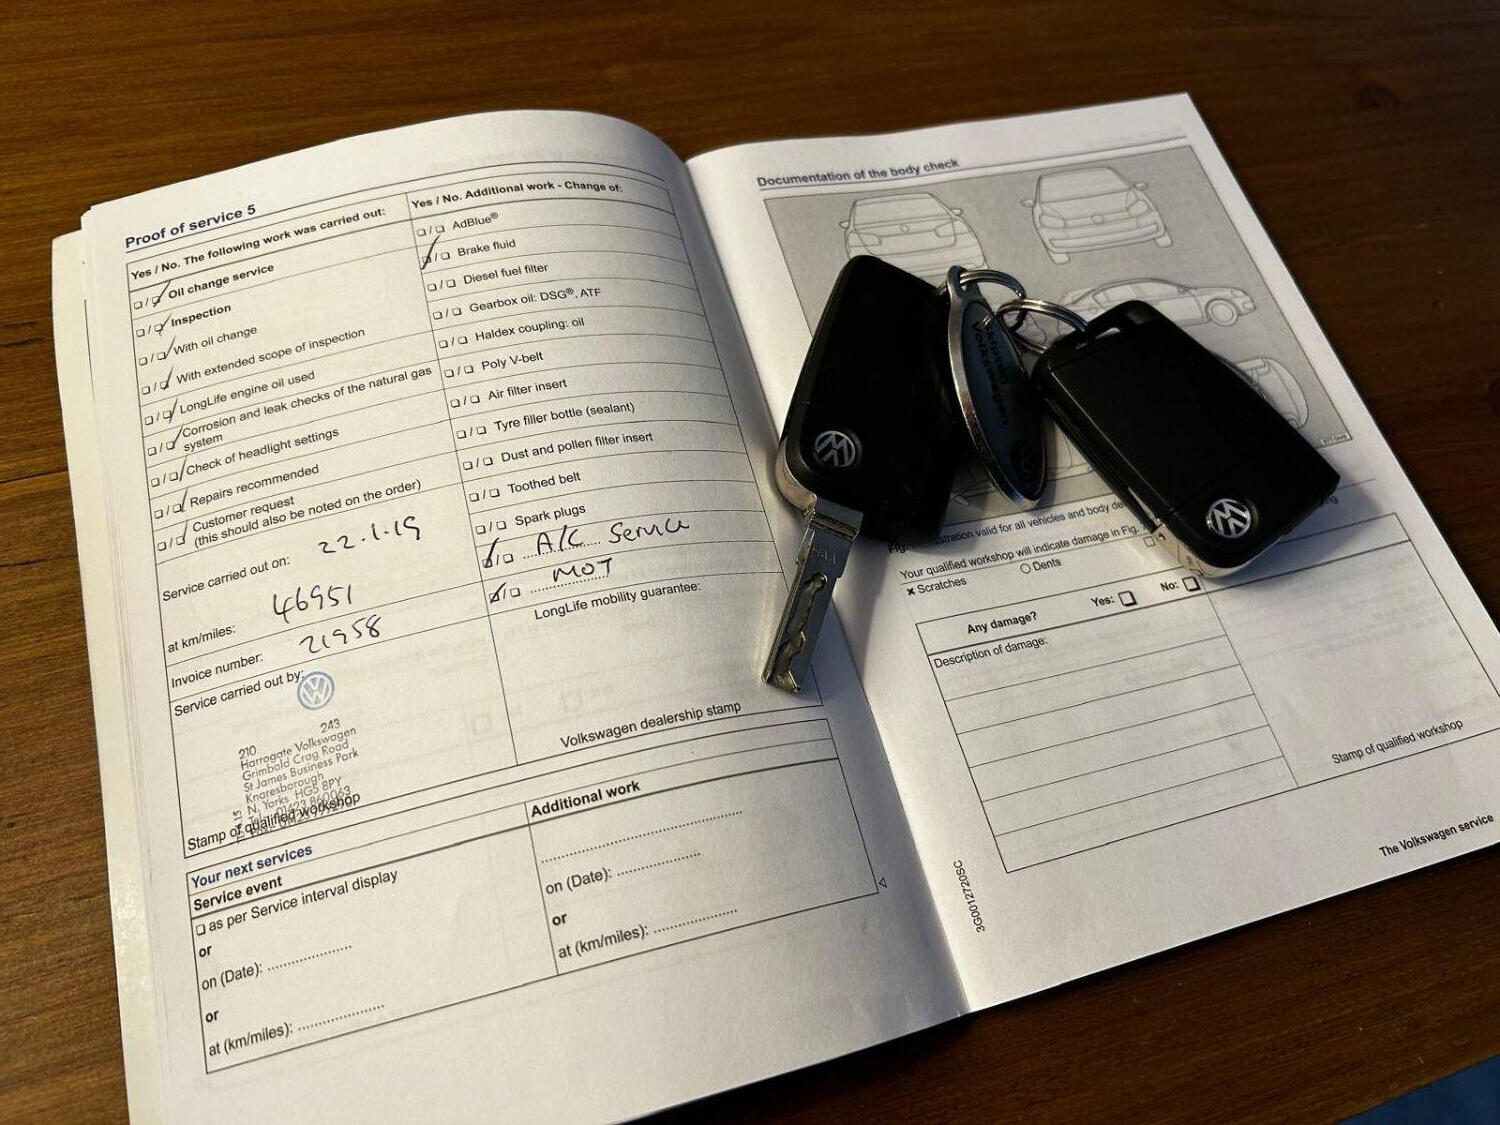 Proof of service 5
Yes / No. The following work was carried out:
Oil change service
Inspection
With oil change
With extended scope of inspection
LongLife engine oil used
Corrosion and leak checks of the natural gas
system
Check of headlight settings
Repairs recommended
Customer request
(this should also be noted on the order)
Service carried out on: 22.1.19
at km/miles: 46951
Invoice number: 21958
Service carried out by:
210 243
Harrogate Volkswagen
Grimbald Crag Road
St James Business Park
Knaresborough
N. Yorks HG5 8PY
Stamp of qualified workshop
Yes / No. Additional work - Change of:
AdBlue®
Brake fluid
Diesel fuel filter
Gearbox oil: DSG®, ATF
Haldex coupling: oil
Poly V-belt
Air filter insert
Tyre filler bottle (sealant)
Dust and pollen filter insert
Toothed belt
Spark plugs
A/C Service
MOT
LongLife mobility guarantee:
Volkswagen dealership stamp
Your next services
Service event
as per Service interval display
or
on (Date):
or
at (km/miles):
Additional work
on (Date):
or
at (km/miles):
Documentation of the body check
Volkswagen
Your qualified workshop will indicate damage in Fig.
Scratches
Dents
Any damage? Yes: No:
Description of damage:
Stamp of qualified workshop
3G0012720SC
The Volkswagen service